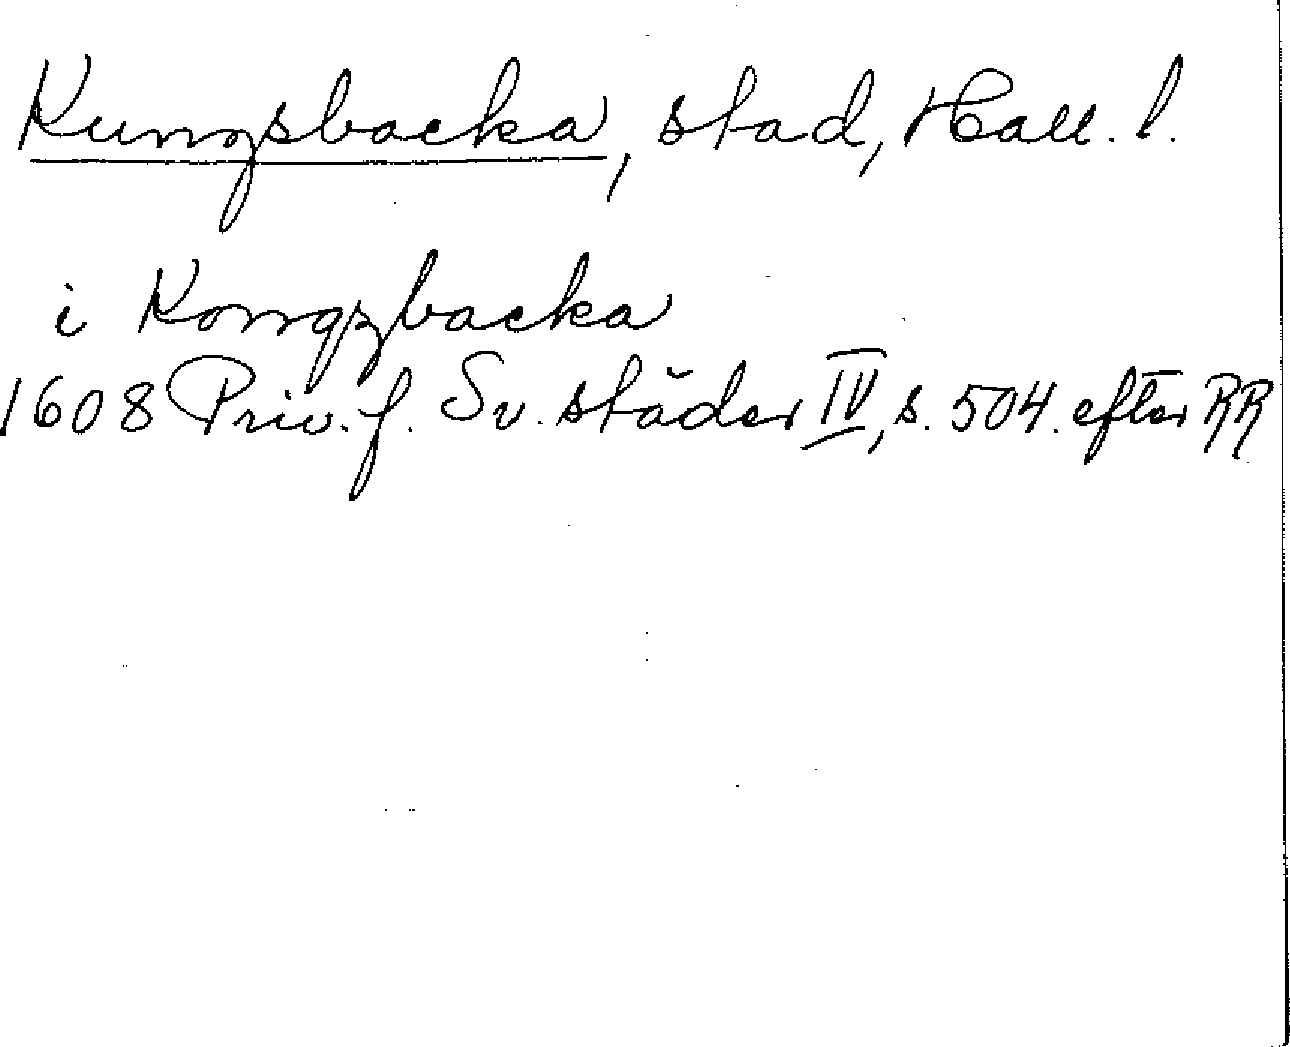 Kungsbacka, stad, Hall. l.
i Kongzbacka
1608 Priv. f. Sv. städer IV, s. 504. efter RR